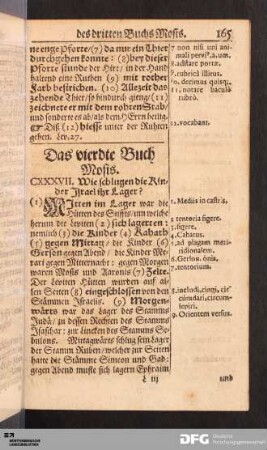 des dritten Buchs Mosis. 165
ne enge Pforte/(7) da nur ein Thier
durchgehen konte: (8) bey dieser
Pforte stunde der Hirt/ in der Hand
haltend eine Ruthen (9) mit rother
Farb bestrichen. (10) Allezeit das
zehende Thier/ so hindurch gieng/ (11)
zeichnete er mit dem rohren Stab/
und sonderte es ab/ als dem HErrn heilig.
Diß (12) hiesse unter der Ruthen
gehen. Lev. 27.
7 non nisi uni ani-
mali pervi°, a, um.
8. adstare portæ.
9. rubricâ illitus.
10. decimus quisq;
11. notare baculô
rubrô.
12. vocabant.
Das vierdte Buch
Mosis.
CXXXVII. Wie schlugen die Kin-
der Israel ihr Lager?
(1) Mitten im Lager war die
Hütten des Stiffts/ um welche
herum die Leviten (2) sich lagerten:
nemlich (3) die Kinder (4) Kahath
(5) gegen Mittag/ die Kinder (6)
Gerson gegen Abend/ die Kinder Me-
rari gegen Mitternacht: gegen Morgen
waren Mosis und Aarons (7) Zelte.
Der Leviten Hütten wurden auf al-
len Seiten (8) eingeschlossen von den
Stämmen Israelis. (9) Morgen-
wärts war das Lager des Stamms
Juda/ zu dessen Rechten des Stamms
Isaschar: zur Lincken des Stamms Se-
bulons. Mittagwärts schlug sein Lager
der Stamm Ruben/ welcher zur Seiten
hatte die Stämme Simeon und Gad:
gegen Abend muste sich lagern Ephraim
1. Medius in castris.
2. tentoria figere.
3. figere.
4. Cahatus.
5. ad plagam meri-
ridionalem.
6. Gerson, ônis.
7. tentorium.
8. includi, cingi, cir-
cumdari, circum-
veniri.
9. Orientem versus.
L iij und
DFG Deutsche
Forschungsgemeinschaft